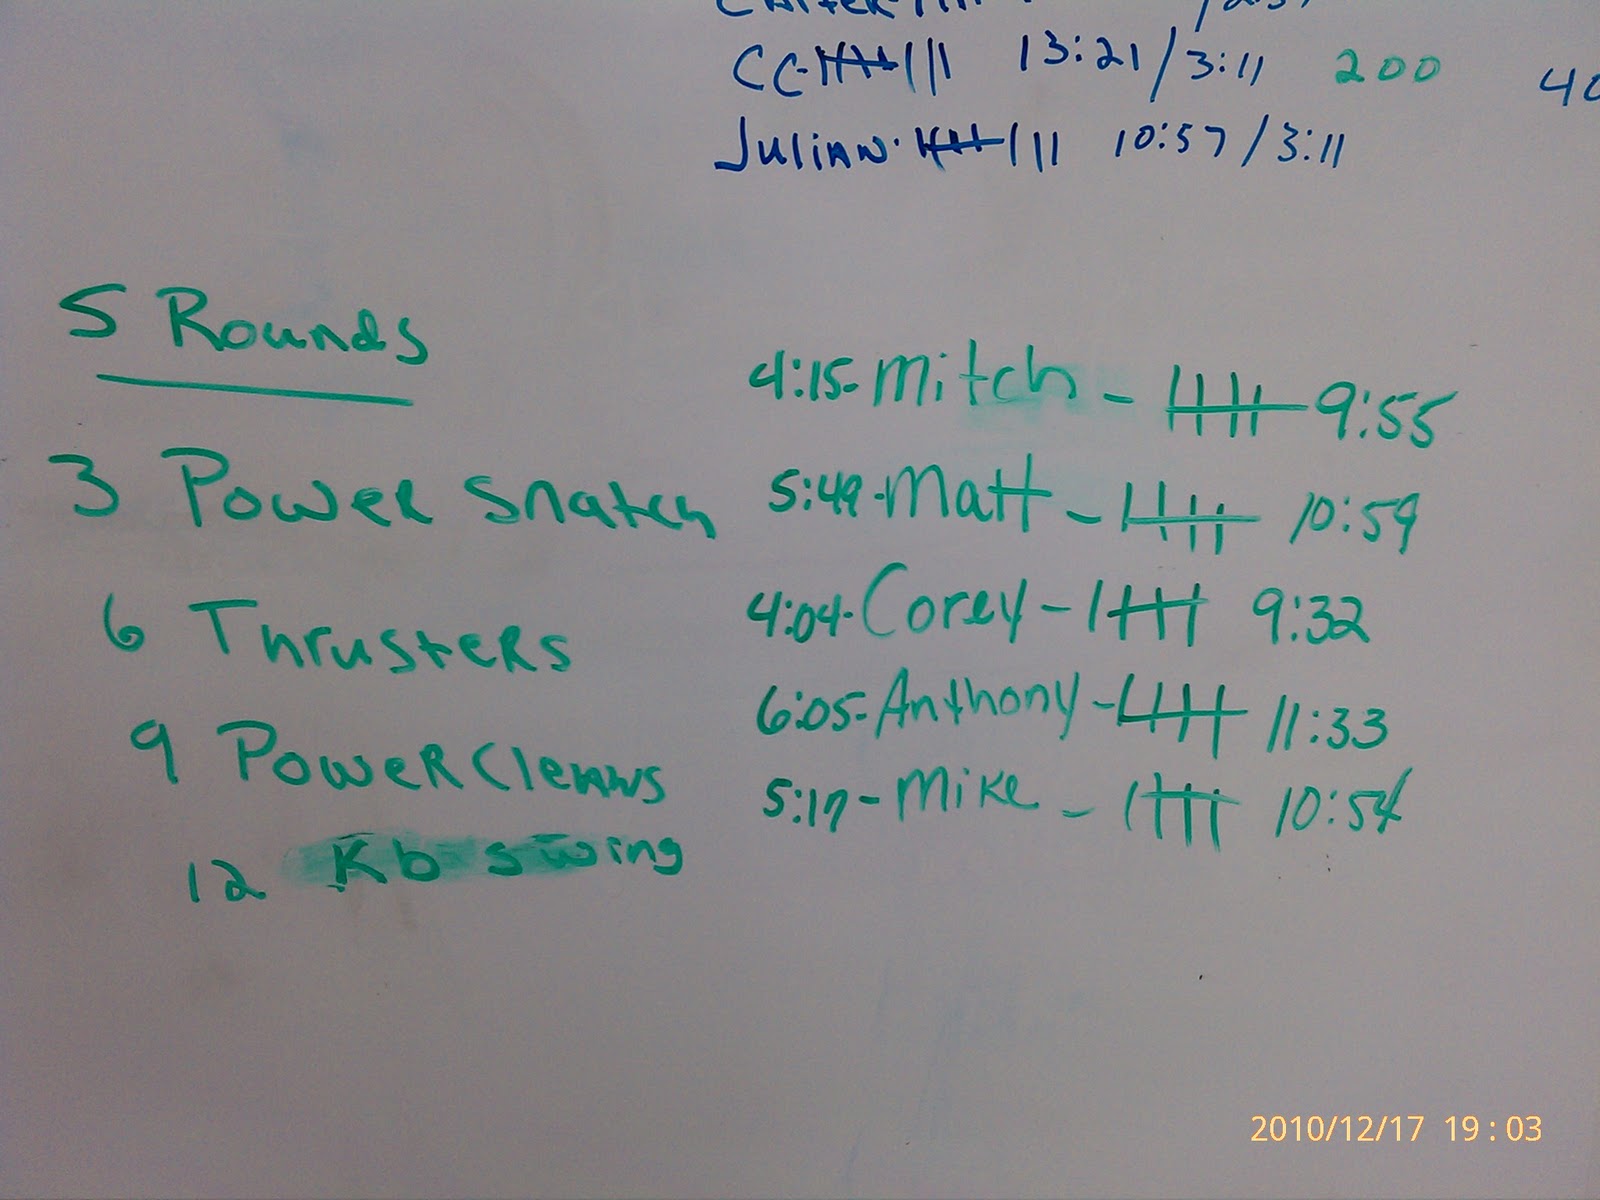 CC- 𝍸||| 13:21 / 3:11 200 40
Julian· 𝍸||| 10:57 / 3:11
5 Rounds
3 Power Snatch
6 Thrusters
9 Power Cleans
12 Kb swing
4:15- Mitch - 𝍸 9:55
5:49- Matt - 𝍸 10:59
4:04- Corey - 𝍸 9:32
6:05- Anthony - 𝍸 11:33
5:17- Mike - 𝍸 10:54
2010/12/17 19:03